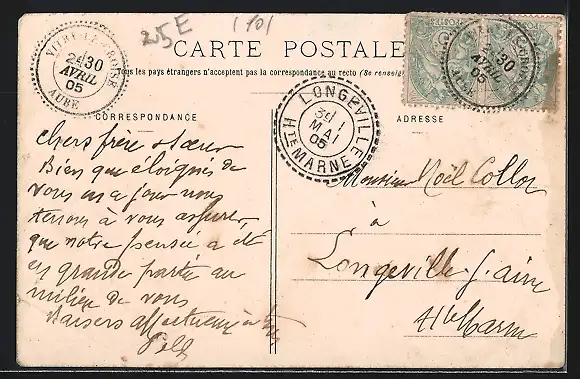 25E
(10)
CARTE POSTALE
Tous les pays étrangers n'acceptent pas la correspondance au recto (Se renseign
CORRESPONDANCE
ADRESSE
VITRY-LE-CROISÉ
30
AVRIL
05
AUBE
LONGEVILLE
MAI
05
HTE MARNE
30
AVRIL
05
AUBE
Chers frère & sœur
Bien que éloignés de
vous en ce jour nous
tenons à vous assurer,
que notre pensée a été
en grande partie au
milieu de vous
Baisers Affectueux à
Monsieur Noël Collot
à
Longeville s/ aine
Hte Marne